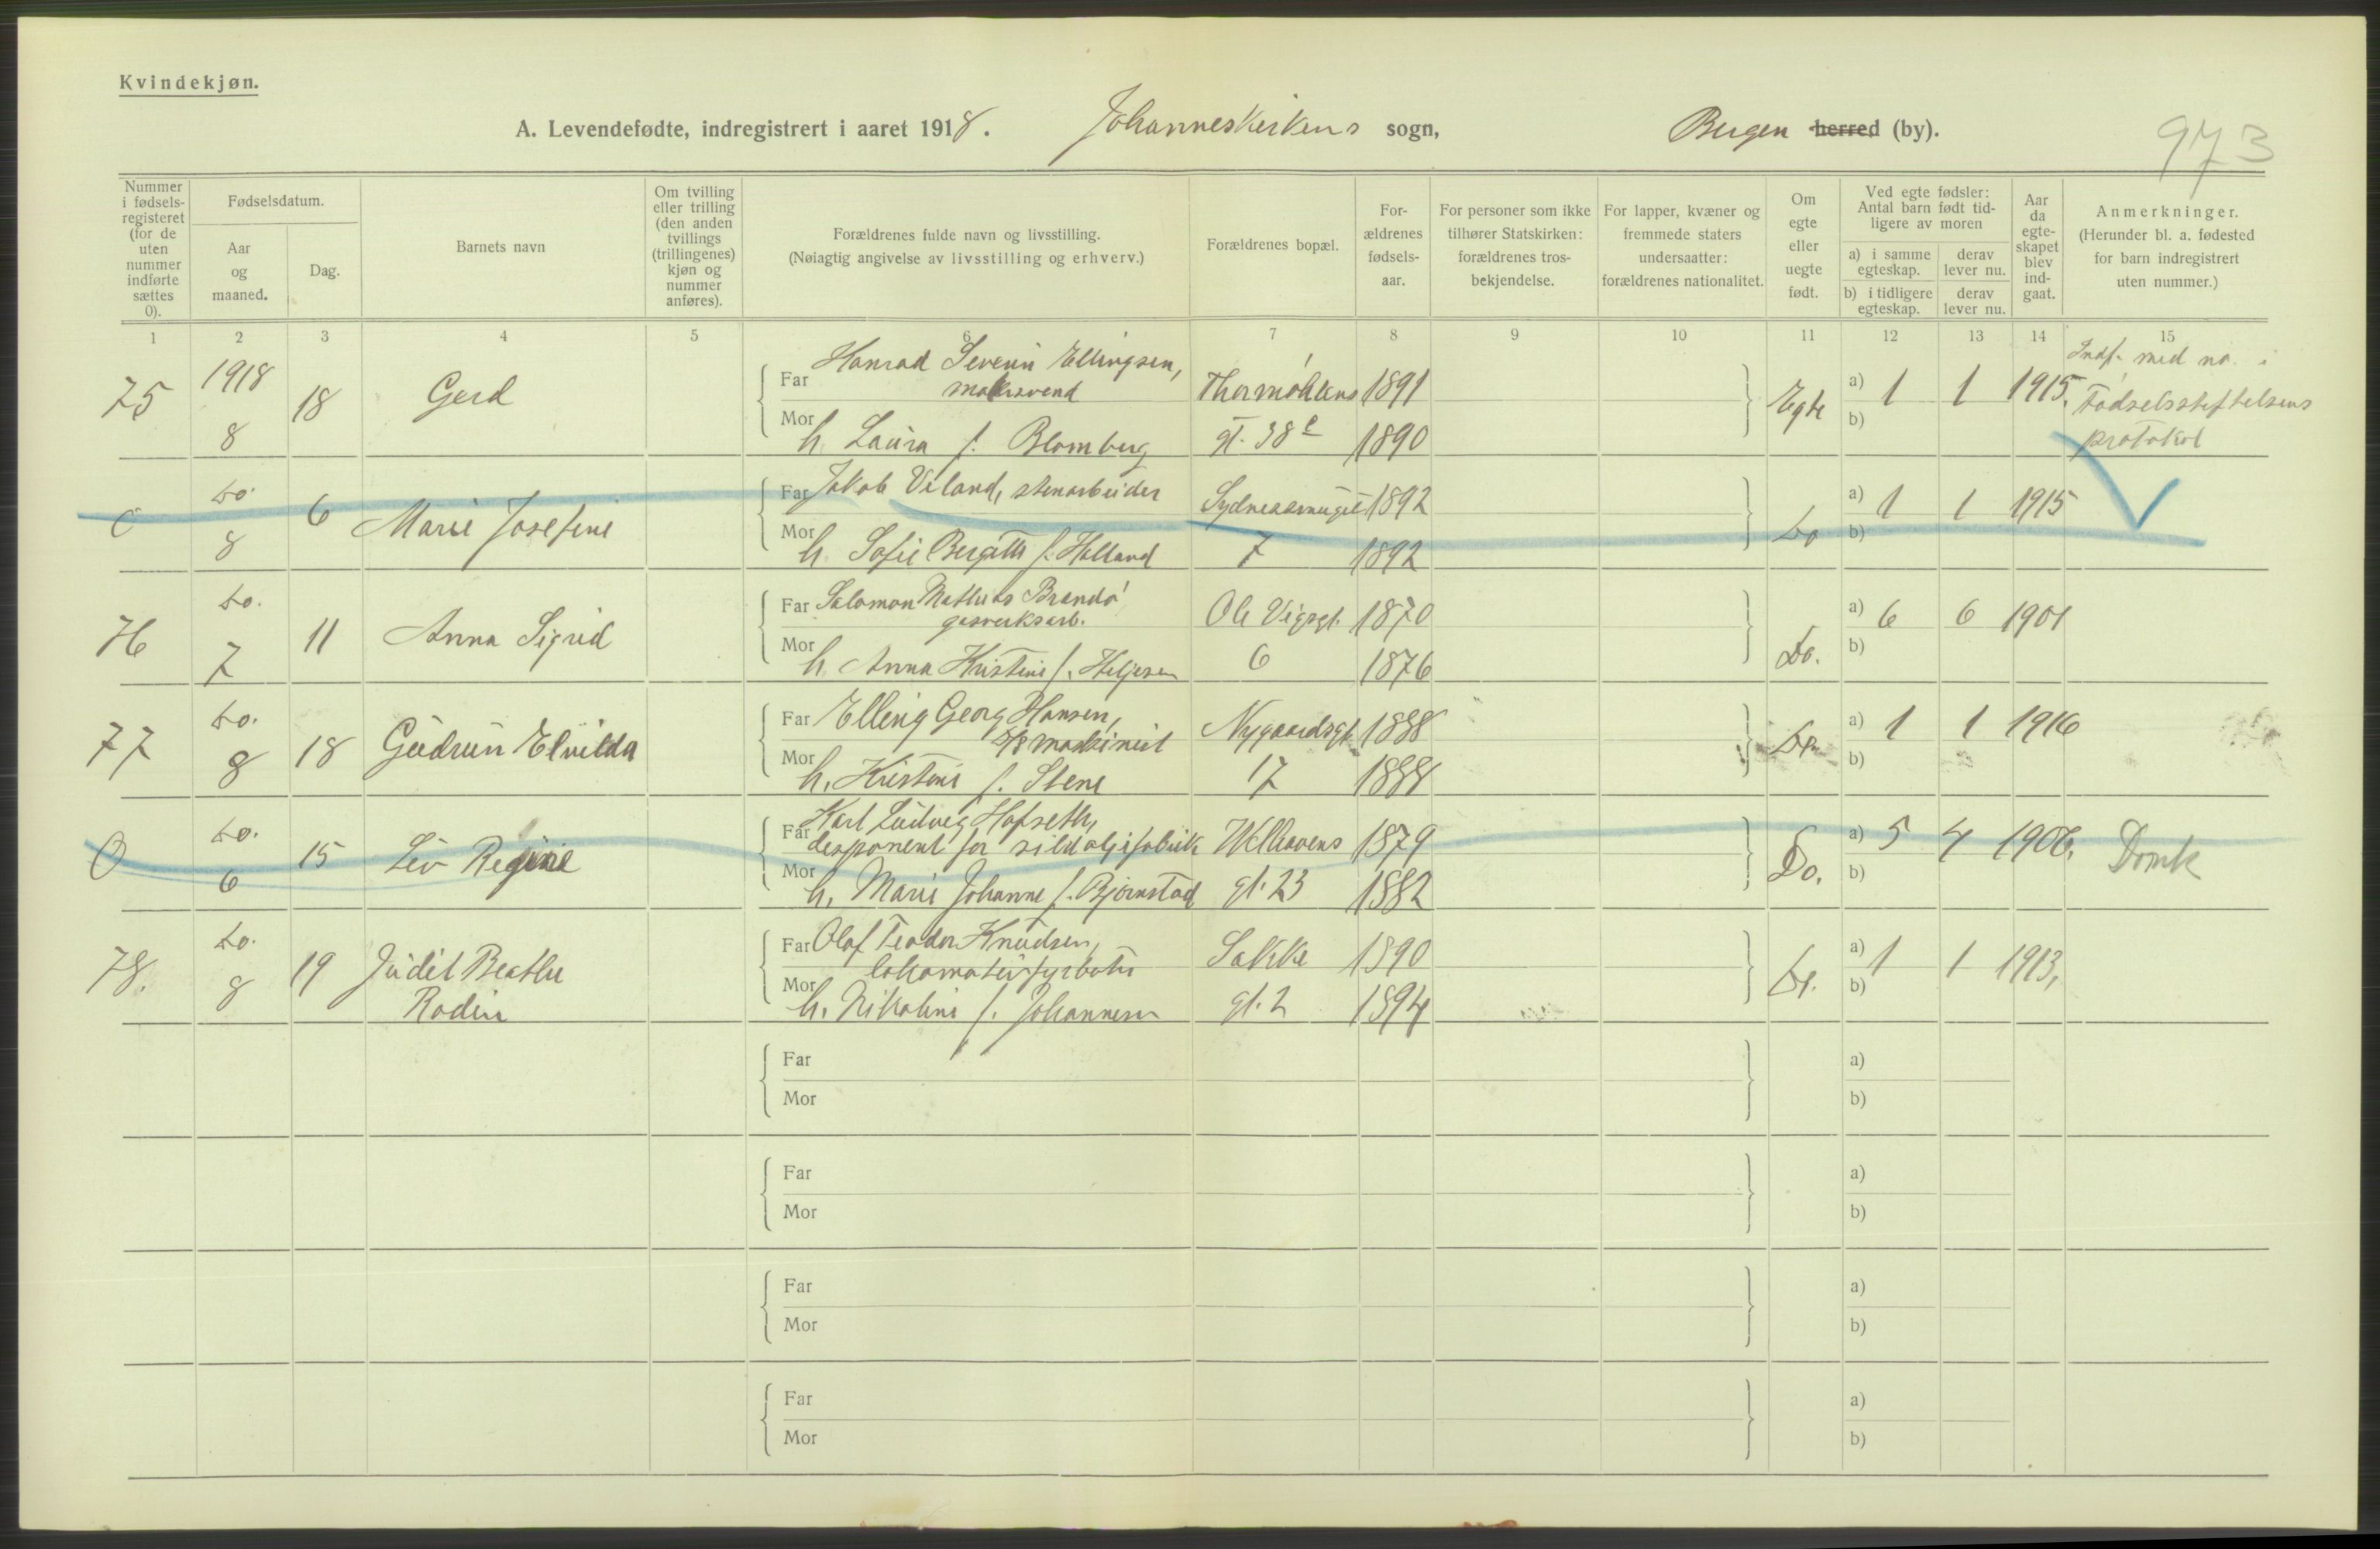 Kvindekjøn.
A. Levendefødte, indregistrert i aaret 1918. Johanneskirkens sogn, Bergen herred (by).
973
Nummer i fødsels-registeret (for de uten nummer indførte sættes 0).
Fødselsdatum.
Aar og maaned.
Dag.
Barnets navn
Om tvilling eller trilling (den anden tvillings (trillingenes) kjøn og nummer anføres).
Forældrenes fulde navn og livsstilling.
(Nøiagtig angivelse av livsstilling og erhverv.)
Forældrenes bopæl.
For-ældrenes fødsels-aar.
For personer som ikke tilhører Statskirken: forældrenes tros-bekjendelse.
For lapper, kvæner og fremmede staters undersaatter: forældrenes nationalitet.
Om egte eller uegte født.
Ved egte fødsler: Antal barn født tid-ligere av moren
a) i samme egteskap. derav lever nu.
b) i tidligere egteskap. derav lever nu.
Aar da egte-skapet blev ind-gaat.
Anmerkninger.
(Herunder bl. a. fødested for barn indregistrert uten nummer.)
1 2 3 4 5 6 7 8 9 10 11 12 13 14 15
75 1918 8 18 Gerd
Far Konrad Severin Ellingsen, malersvend
Mor h. Laura f. Blomberg
Thormøhlens gt. 38 c 1891 1890 Egte a) 1 1 1915. b)
Indf. med no. i Fødselsstiftelsens protokol
0 Do. 8 6 Marie Josefine
Far Jakob Veland, stenarbeider
Mor h. Sofie Bergitte f. Helland
Sydnessmuget 7 1892 1892 Do a) 1 1 1915 b)
76 Do. 7 11 Anna Sigrid
Far Salomon Mathias Brandø gasverksarb.
Mor h. Anna Kristine f. Heljesen
Ole Vigsgt. 6 1870 1876 Do. a) 6 6 1901 b)
77 Do. 8 18 Gudrun Elvilda
Far Elling Georg Hansen, D/S maskinist
Mor h. Kristine f. Stene
Nygaardsgt 17 1888 1888 Do. a) 1 1 1916 b)
0 Do. 6 15 Liv Regine
Far Karl Ludvig Hofseth, disponent for sildoljefabrik
Mor h. Marie Johanne f. Bjørnstad
Welhavens gt. 23 1879 1882 Do. a) 5 4 1906. b)
Domk
78. Do. 8 19 Judit Beathe Rodin
Far Olof Teodor Knudsen, lokomotivfyrbøter
Mor h. Nikoline f. Johannesen
Sakke gt. 2 1890 1894 Do. a) 1 1 1913. b)
Far
Mor
a)
b)
Far
Mor
a)
b)
Far
Mor
a)
b)
Far
Mor
a)
b)